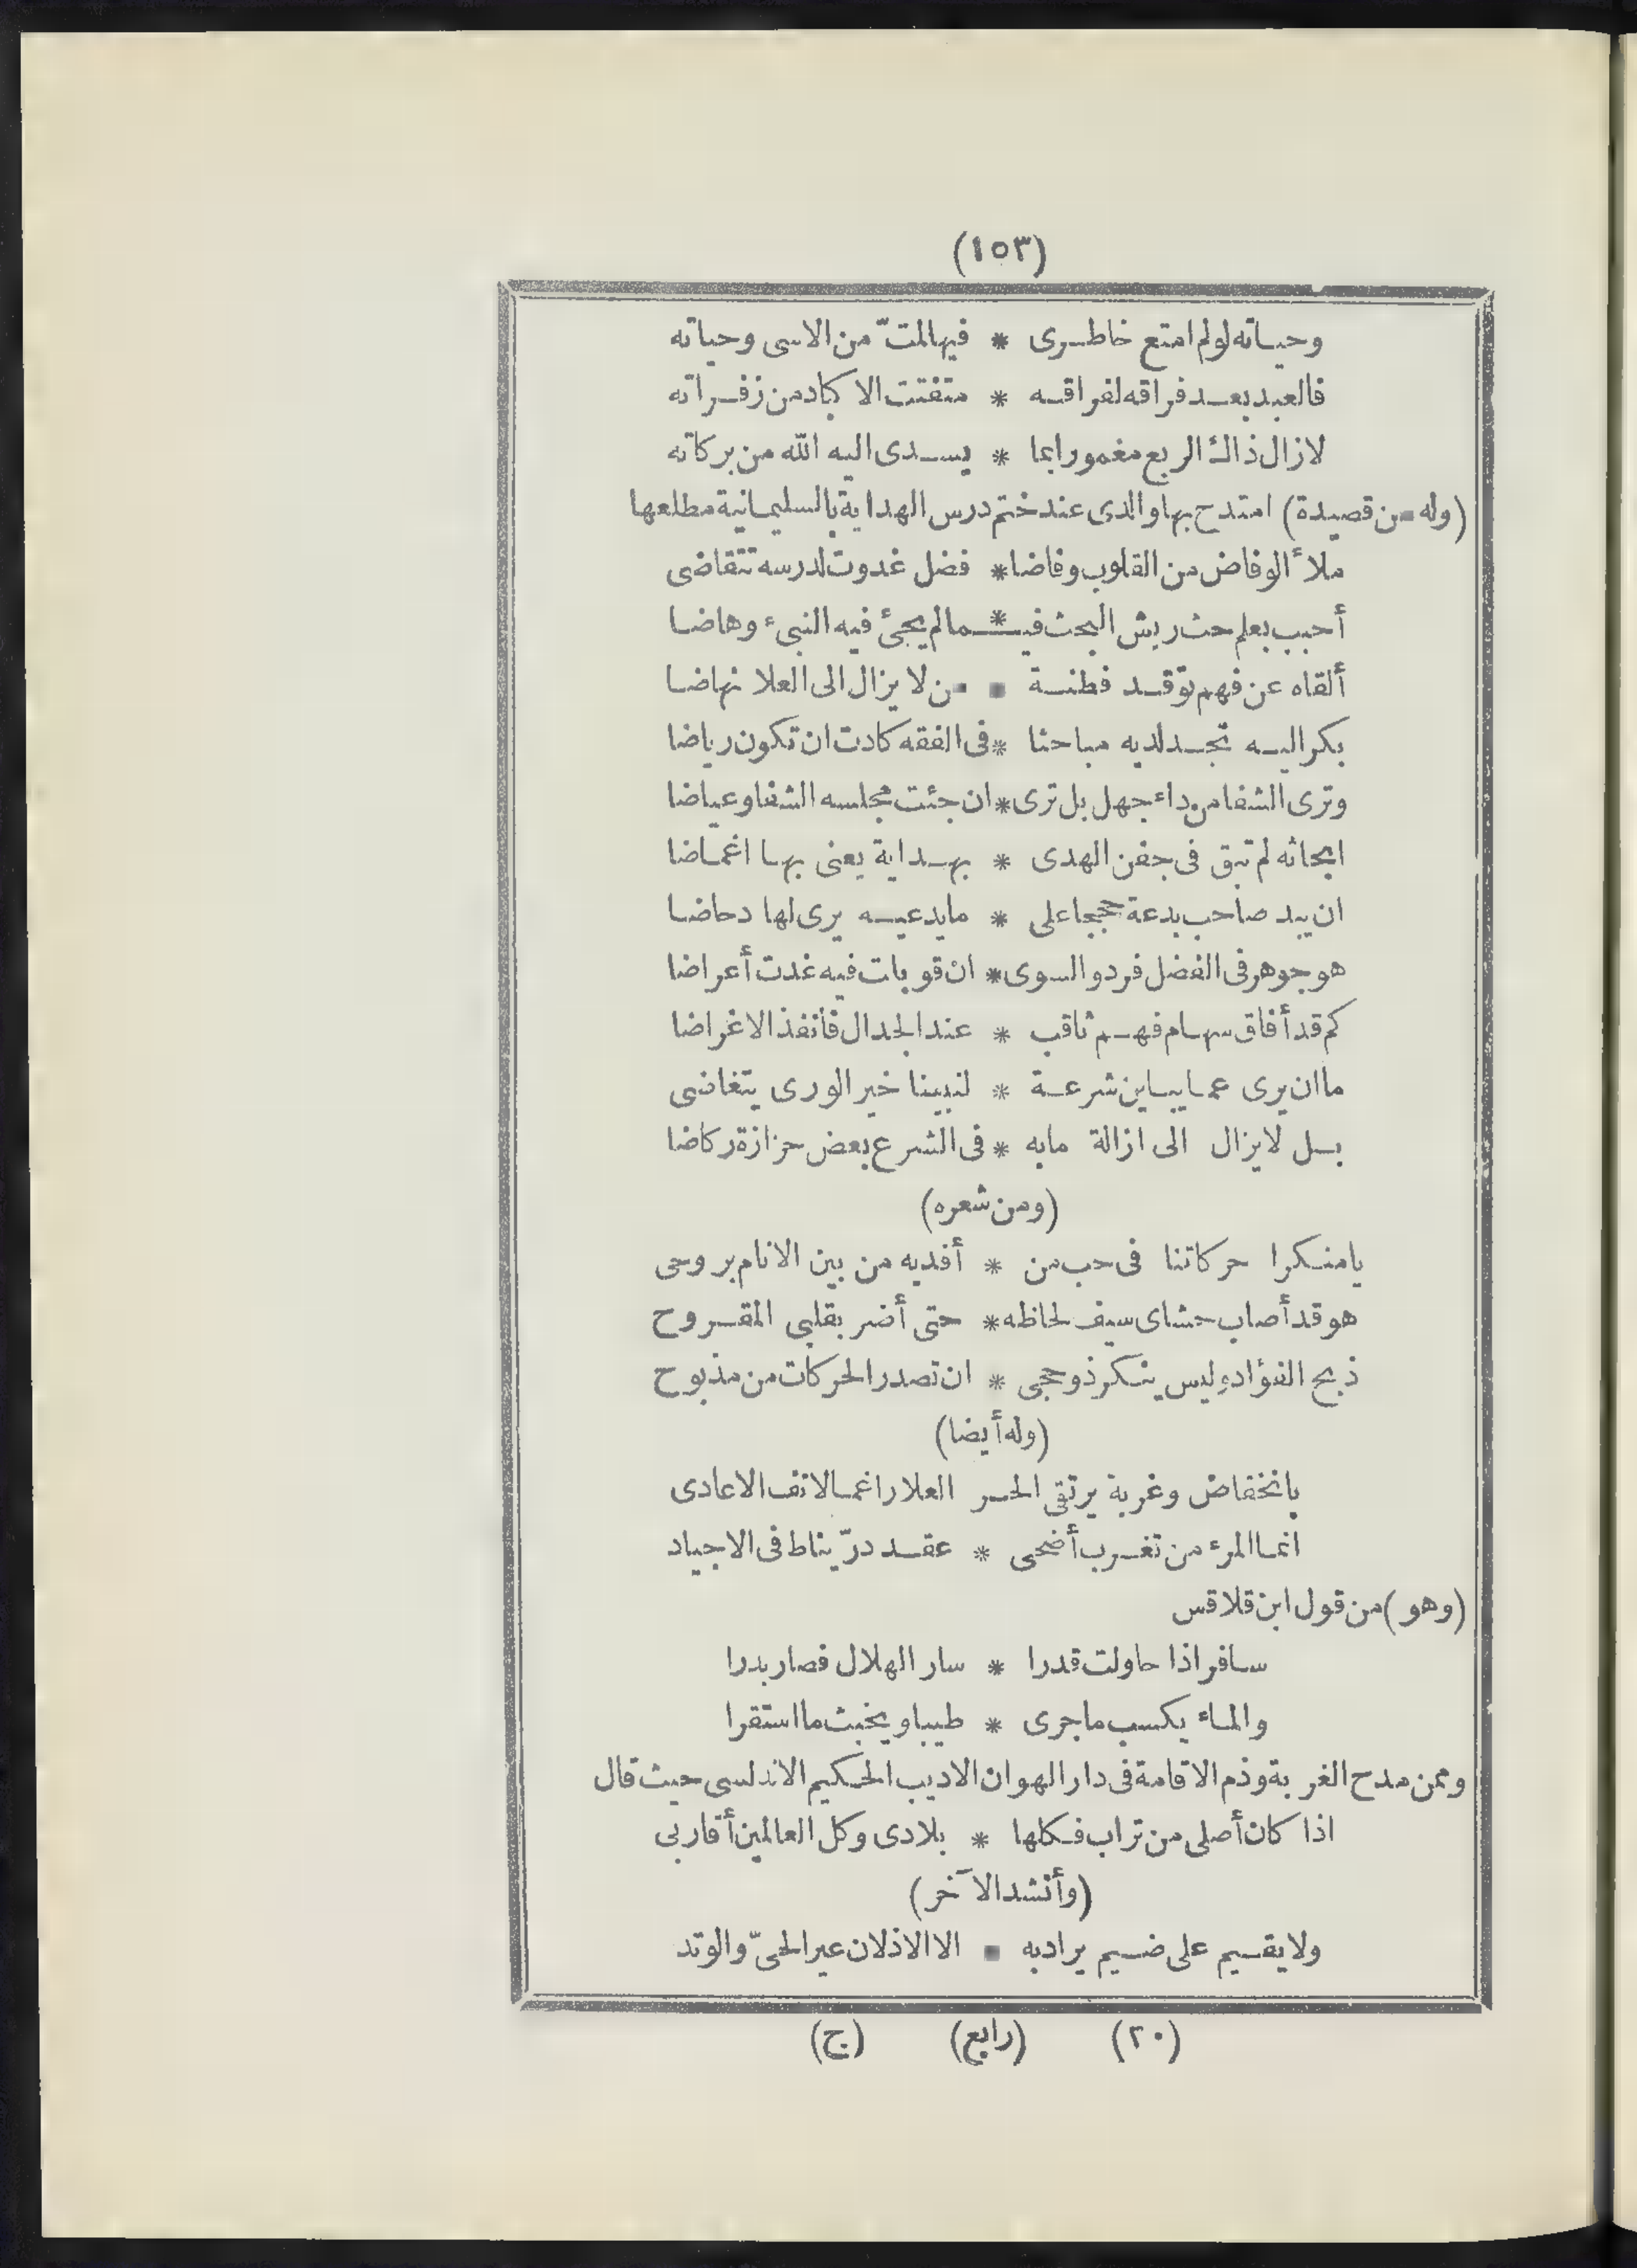 (١٥٣)
وحياته لو لم امتع خاطرى * فيها لمتّ من الاسى وحياته
فالعبد بعد فراقه لفراقه * متفتت الاكباد من زفراته
لازال ذاك الربع مغمورا بما * يسدى اليه الله من بركاته
(وله من قصيدة) امتدح بها والدى عند ختم درس الهداية بالسليمانية مطلعها
ملأ الوفاض من القلوب وفاضا * فضل غدوت لدرسه تتقاضى
أحبب بعلم حث ريش البحث فيـ * ـما لم يجئ فيه النبىء وهاضا
ألقاه عن فهم توقد فطنة * من لا يزال الى العلا نهاضا
بكر اليه تجد لديه مباحثا * فى الفقه كادت ان تكون رياضا
وترى الشفا من داء جهل بل ترى * ان جئت مجلسه الشفا وعياضا
ابحاثه لم تبق فى جفن الهدى * بهداية يعنى بها اغماضا
ان يبد صاحب بدعة حججا على * ما يدعيه يرى لها دحاضا
هو جوهر فى الفضل فرد والسوى * ان قوبلت فيه غدت أعراضا
كم قد أفاق سهام فهم ثاقب * عند الجدال فأنفذ الاغراضا
ما ان يرى عما يباين شرعة * لنبينا خير الورى يتغاضى
بل لا يزال الى ازالة ما به * فى الشرع بعض حزازة ركاضا
(ومن شعره)
يا منكرا حركاتنا فى حب من * أفديه من بين الانام بروحى
هو قد أصاب حشاى سيف لحاظه * حتى أضر بقلبى المقروح
ذبح الفؤاد وليس ينكر ذو حجى * ان تصدر الحركات من مذبوح
(وله أيضا)
بانخفاض وغربة يرتقى الحر العلا راغما لانف الاعادى
انما المرء من تغرب أضحى * عقد درّ يناط فى الاجياد
(وهو) من قول ابن قلاقس
سافر اذا حاولت قدرا * سار الهلال فصار بدرا
والماء يكسب ما جرى * طيبا ويخبث ما استقرا
وممن مدح الغربة وذم الاقامة فى دار الهوان الاديب الحكيم الاندلسى حيث قال
اذا كان أصلى من تراب فكلها * بلادى وكل العالمين أقاربى
(وأنشد الآخر)
ولا يقيم على ضيم يراد به * الا الاذلان عير الحىّ والوتد
(٢٠) (رابع) (ج)